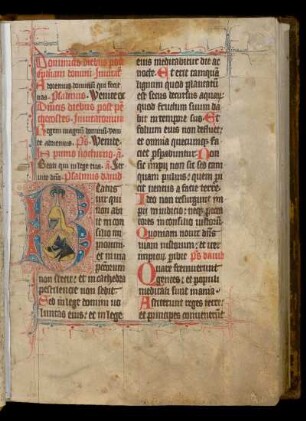 Dominicis diebus post
Adoremus dominum qui fecit
nos. Psalmus. Venite
Regem magnum dominum
Venite
Psalmus david
Eatus
vir qui
non abi
it in con
silio im
piorum
et in via
peccatorum
non stetit: et in cathedra
pestilencie non sedit.
Sed in lege domini vo
luntas eius: et in lege
eius meditabitur die ac
nocte. Et erit tamquam
lignum quod plantatum
est secus decursus aquarum:
quod fructum suum da
bit in tempore suo. Et
folium eius non defluet:
et omnia quecumque fa
ciet prosperabuntur. Non
sic impii non sic: sed tam
quam pulvis: quem pro
icit ventus a facie terre.
Ideo non resurgunt im
pii in iudicio: neque pecca
tores in consilio iustorum.
Quoniam novit dominus
viam iustorum: et iter im
piorum peribit. ps david
Quare fremuerunt
gentes: et populi
meditati sunt inania.
Astiterunt reges terre:
et principes convenerunt